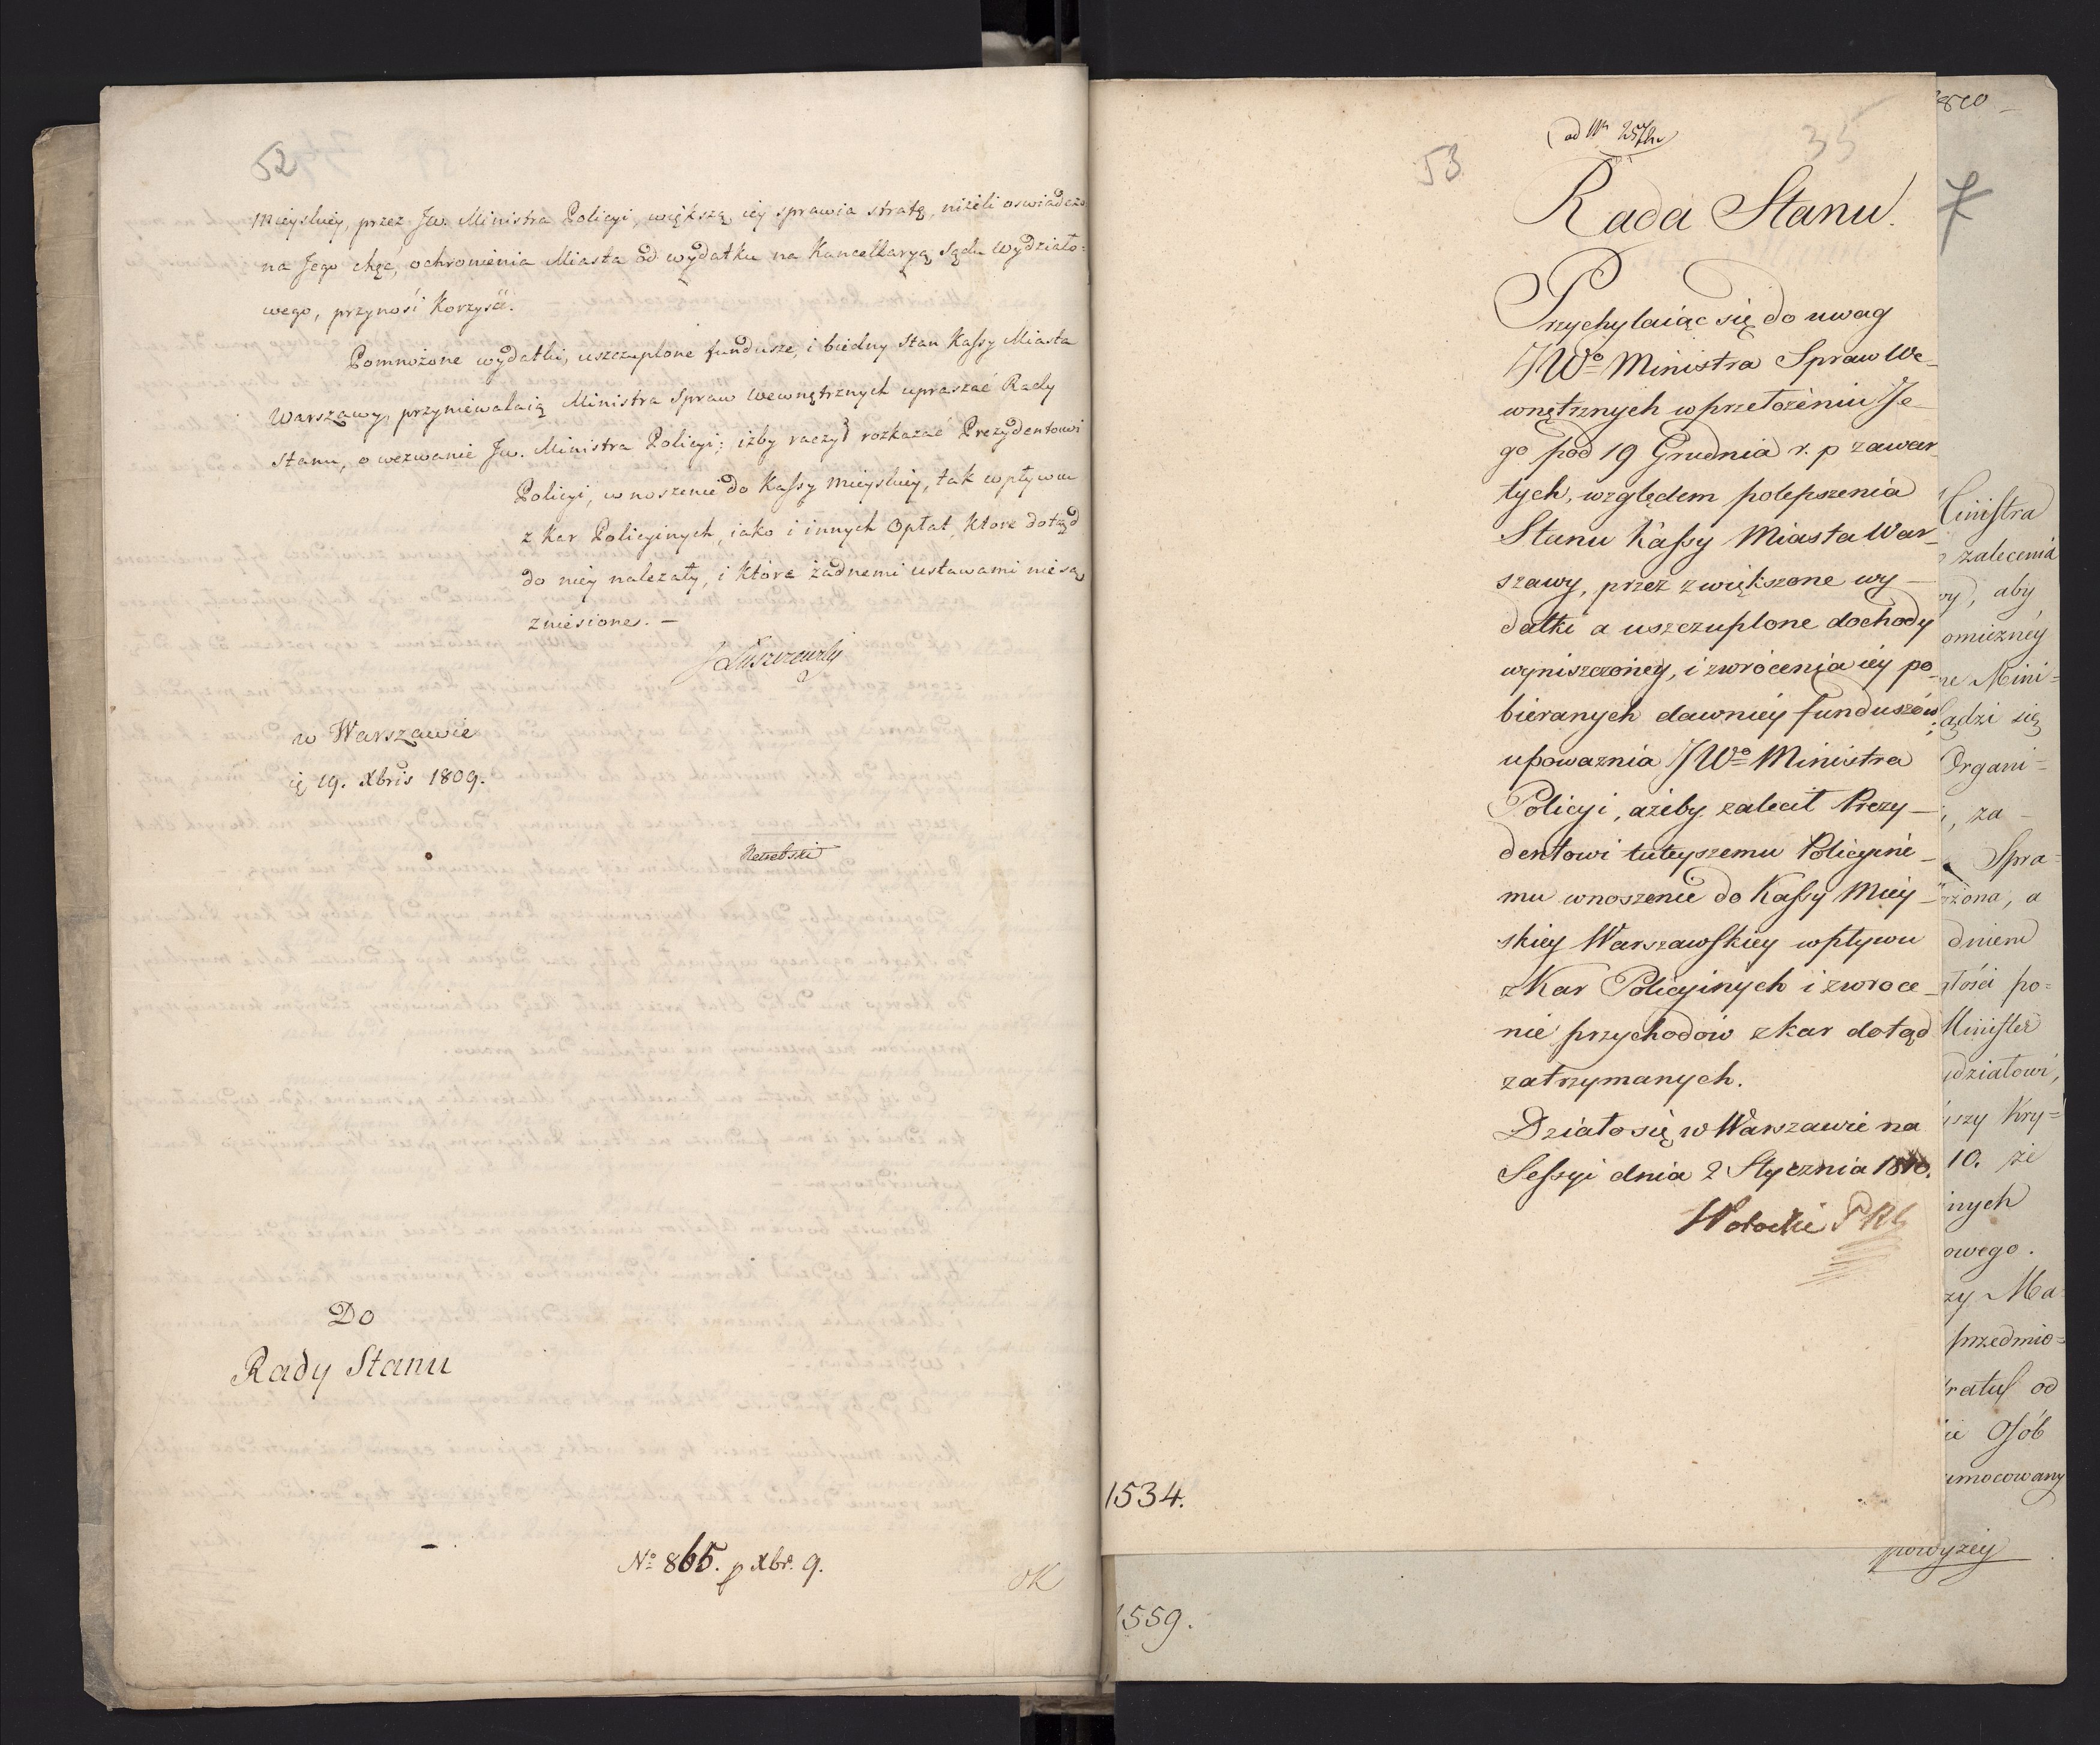 52
Mieyskiey, przez Jw. Ministra Policyi, większą iey sprawia stratę, niżeli oswiadczo
na Jego chęć, ochronienia Miasta od wydatku na Kancellaryą Sądu Wydziało=
wego, przynosi Korzyść.
Pomnożone wydatki, uszczuplone fundusze, i biedny Stan Kassy Miasta
Warszawy, przyniewalaią Ministra Spraw Wewnętrznych upraszać Rady
Stanu, o wezwanie Jw. Ministra Policyi; iżby raczył rozkazać Prezydentowi
Policyi, wnoszenie do Kassy Mieyskiey, tak wpływu
z Kar Policyinych, iako i innych Opłat, które dotąd
do niey należały, i które żadnemi ustawami nie są
zniesione. —
J Łuszczewski
w Warszawie
19. Xbris 1809.
Do
Rady Stanu
No 865. p Xbr. 9.
53
35
Rada Stanu.
Przychylaiąc się do uwag
JWo Ministra Spraw We-
wnętrznych w przełożeniu Je-
go pod 19 Grudnia r. p zawar
tych, względem polepszenia
Stanu Kassy Miasta War-
szawy, przez zwiększone wy-
datki a uszczuplone dochody
wyniszczoney, i zwrócenia iey po-
bieranych dawniey funduszów;
upoważnia JWo Ministra
Policyi, ażeby zalecił Prezy-
dentowi tuteyszemu Policyine-
mu wnoszenie do Kassy Miey-
skiey Warszawskiey wpływu
z Kar Policyinych i zwroce-
nie przychodow z kar dotąd
zatrzymanych.
Działo się w Warszawie na
Sessyi dnia 2 Stycznia 1810.
1534.
Ministra
zalecenia
aby
Mini=
się
Organi=
za
Spra=
a
dniem
po=
Minister
Kry=
10. że
owego.
Ma
przedmio=
od
Osób
powyżey
1559.